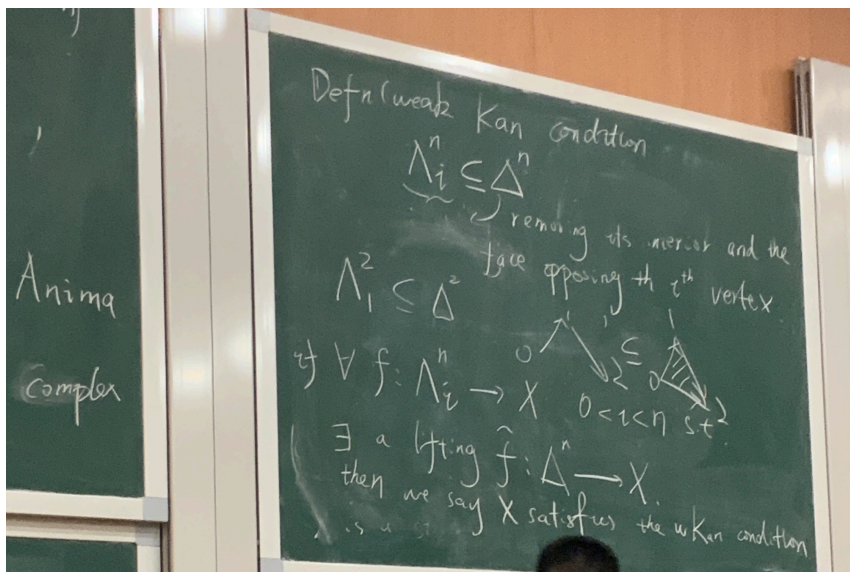 Anima
complex
Defn (weak Kan condition
Λⁿᵢ ⊆ Δⁿ
removing its interior and the
face opposing th iᵗʰ vertex.
Λ²₁ ⊆ Δ²
0 1 2 ⊆ 0 1 2
if ∀ f : Λⁿᵢ → X 0<i<n s.t.
∃ a lifting f̃ : Δⁿ → X.
then we say X satisfies the wKan condition